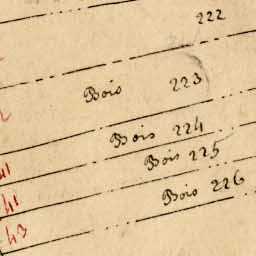 222
Bois 223
Bois 224
41
Bois 225
41
Bois 226
43